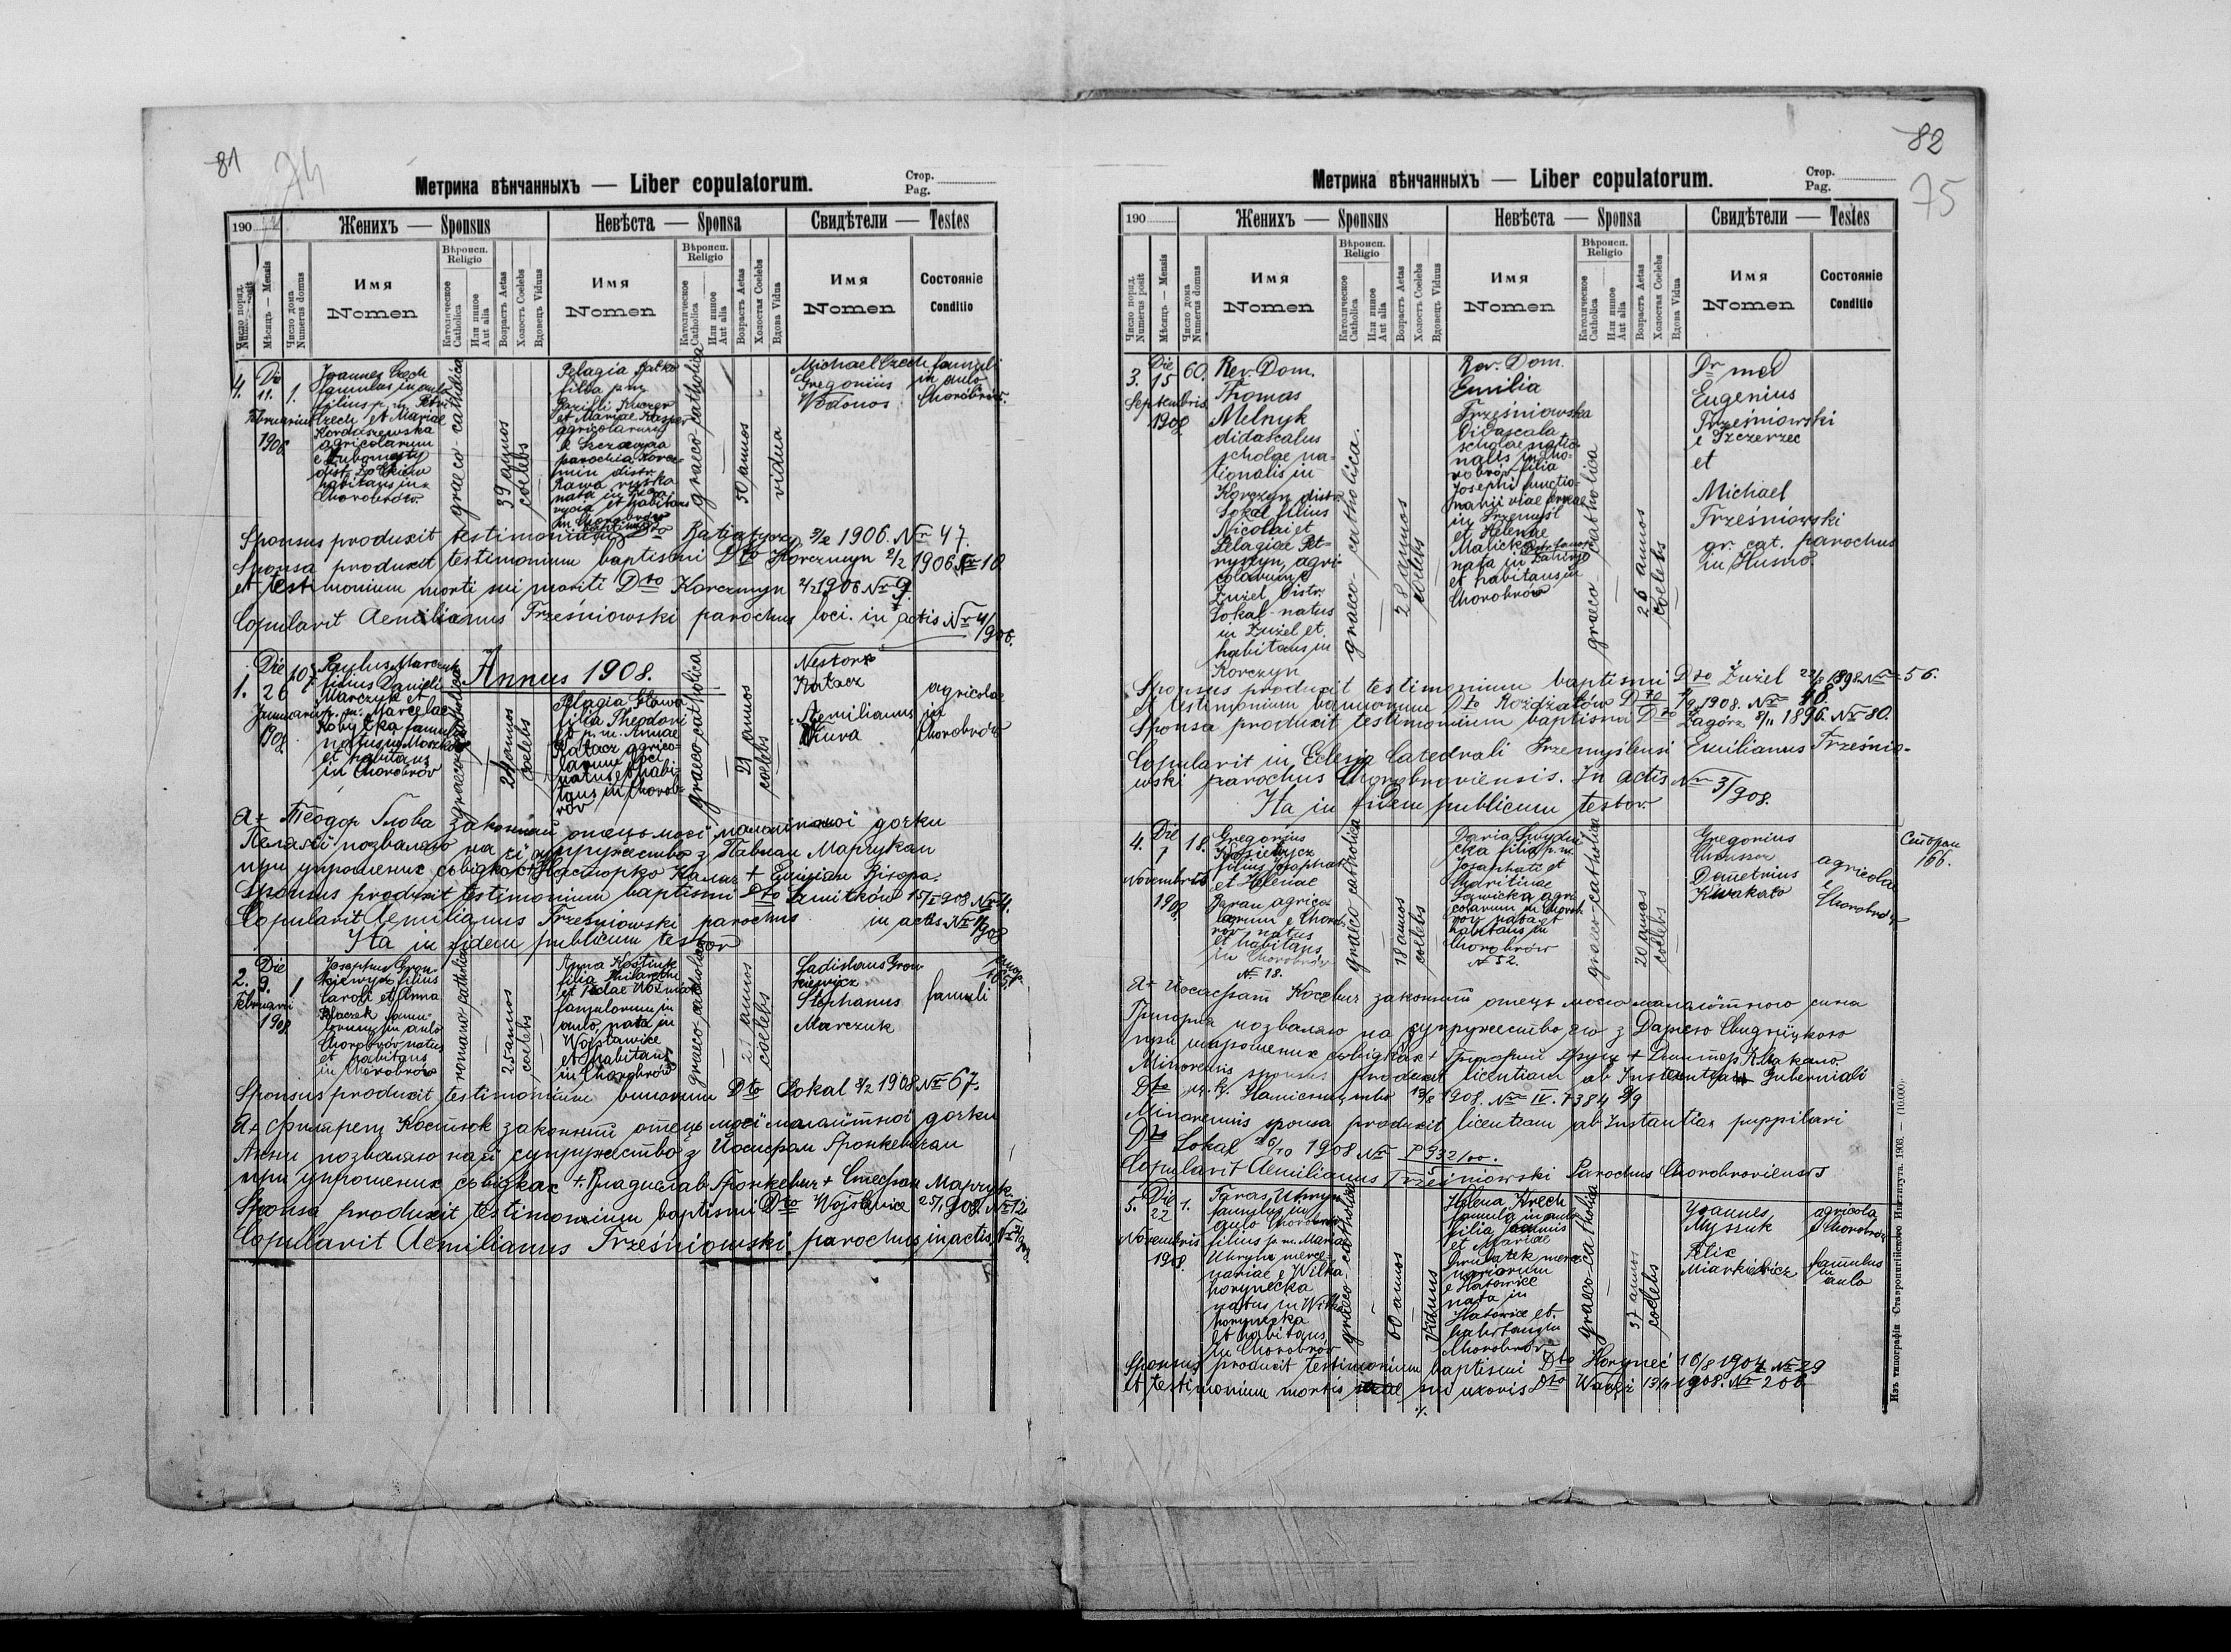 81
74
Метрика вѣнчанныхъ — Liber copulatorum.
Стор.
Pag.
190
Женихъ — Sponsus
Невѣста — Sponsa
Свидѣтели — Testes
Число поряд.
Numerus posit
Мѣсяцъ — Mensis
Число дома
Numerus domus
Имя
Nomen
Вѣроисп.
Religio
Католическое
Catholica
Или инное
Aut alia
Возрастъ Aetas
Холостъ Coelebs
Вдовецъ Viduus
Имя
Nomen
Вѣроисп.
Religio
Католическое
Catholica
Или инное
Aut alia
Возрастъ Aetas
Холостая Coelebs
Вдова Vidua
Имя
Nomen
Состояніе
Conditio
4.
Die
11.
Februarius
1906
1.
Joannes Czech
famulus in aulo
filius p. m. Petri
Czech et Mariae
Kordaszewska
agricolarum
distr. Żółkiew
habitans in
Chorobrów
graeco-catholica
39 annos
coelebs
Pelagia Pałka
filia p. m.
Bazilii Kuczer
et Mariae
agricolarum
e Szczepia
parochia Korcz-
min distr.
Rawa ruska
nata in
et habitans
in Chorobrów
graeco-catholica
50 annos
vidua
Michael Czech famuli
Gregorius in aulo
Wodonos Chorobrów.
Sponsus produxit testimonium Dto 3/2 1906. Nr 47.
Sponsa produxit testimonium baptismi Dto Korczmyn 2/2 1906 Nr 10
et testimonium morti sui mariti Dto Korczmyn 2/2 1906 Nr 9.
Copulavit Aemilianus Trześniowski parochus loci. in actis Nr 4/906.
Annus 1908.
1.
Die
26
Januarii
1908.
107
Paulus Marczuk
filius Danieli
Marczuk et
p. m. Marcelae
Kobyłka famul
natus in Moszków
et habitans
in Chorobrów
graeco-catholica
24 annos
coelebs
Pelagia Głowa
filia Theodori
et p. m. Annae
Katacz agrico-
larum loci
natus et habi-
tans in Chorob-
rów
graeco-catholica
21 annos
coelebs
Nestor
Katacz
Aemilianus
Dziura
agricolae
in
Chorobrów
а + Теодор Глова законний отець моєї малолітної дочки
Пелагії позваляю на єї супружество з Павлом Марчуком
при упрошених свідках + Несторко Калач + Емілян Дзюра.
Sponsus produxit testimonium baptismi Dto Smitków 15/I 908 Nr 4.
Copulavit Aemilianus Trześniowski parochus in actis Nr 1/908
Ita in fidem publicum testor
2.
Die
9.
Februarii
1908.
1
Josephus Gron-
kiewycz filius
Caroli et Anna
Kłaczek famu-
lorum in aulo
Chorobrów natus
et habitans
in Chorobrów
romano-catholica
25 annos
coelebs
Anna Kostiuk
filia Philareti
et Teclae Woźniak
famulorum in
aulo, nata in
Wojsławice
et habitans
in Chorobrów
graeco-catholica
21 annos
coelebs
Ladislaus Gron-
kiewicz
Stephanus
Marczuk
famuli
165.
Sponsus produxit testimonium bannorum Dto Sokal 3/2 1908 Nr 67.
а + Филярет Костюк законний отець моєї малолітної дочки
Анни позваляю на єї супружество з Йосифом Гронкевичом
при упрошених свідках + Владислав Гронкевич + Стефан Марчук
Sponsa produxit testimonium baptismi Dto Wojsławice 25/1 908. Nr 12.
Copulavit Aemilianus Trześniowski parochus in actis Nr 2/908
82
75
Метрика вѣнчанныхъ — Liber copulatorum.
Стор.
Pag.
190
Женихъ — Sponsus
Невѣста — Sponsa
Свидѣтели — Testes
Число поряд.
Numerus posit
Мѣсяцъ — Mensis
Число дома
Numerus domus
Имя
Nomen
Вѣроисп.
Religio
Католическое
Catholica
Или инное
Aut alia
Возрастъ Aetas
Холостъ Coelebs
Вдовецъ Viduus
Имя
Nomen
Вѣроисп.
Religio
Католическое
Catholica
Или инное
Aut alia
Возрастъ Aetas
Холостая Coelebs
Вдова Vidua
Имя
Nomen
Состояніе
Conditio
3.
Die
15
Septembris
1908.
60.
Rev. Dom.
Thomas
Melnyk
didascalus
scholae na-
tionalis in
Korczyn distr.
Sokal filius
Nicolai et
Pelagiae Pet-
ryszyn, agri-
colarum e
Żużel distr.
Sokal - natus
in Żużel et
habitans in
Korczyn
graeco-catholica.
28 annos
coelebs
Rev. Dom.
Emilia
Trześniowska
Didascala
scholae natio-
nalis in Cho-
robrów filia
Josephi functio-
narii viae ferreae
in Przemyśl
et Helenae
Malicka
nata in Zahirja
et habitans in
Chorobrów
graeco-catholica
26 annos
coelebs
Dr med
Eugenius
Trześniowski
e Szczerzec
et
Michael
Trześniowski
gr. cat. parochus
in Husnó.
Sponsus produxit testimonium baptismi Dto Żużel 22/8 1898 Nr 56.
et testimonium bannorum Dto Rozdżałów Dto 14/9 1908. Nr 48
Sponsa produxit testimonium baptismi Dto Zagórz 8/11 1896. Nr 80.
Copulavit in Eclesia Catedrali Przemyslensi Emilianus Trześnio-
wski parochus Chorobroviensis. In actis Nr 3/908.
Ita in fidem publicum testor
4.
Die
1
Novembris
1908.
18.
Gregorius
Kosiewycz
filius Josaphat
et Helenae
Baran agrico-
larum e Chorob-
rów natus
et habitans
in Chorobrów
Nr 18.
graeco catholica
18 annos
coelebs
Daria Smydni-
cka filia p. m.
Josaphati et
Charitinae
Sawicka agri-
colarum in Chorob-
rów nata et
habitans in
Chorobrów
Nr 52.
graeco-catholica
20 annos
coelebs
Gregorius
Demetrius
Kiwakało
agricolae
e
Chorobrów
Сторон
166.
а + Йосафат Косевич законний отець мого малолітного сина
Григорія позваляю на супружество его з Дариєю Смидніцкою
при упрошених свідках + Григорий + Димитер Ківакало.
Minorensis sponsus produxit licentiam ab Instantia Guberniali
Dto 19/8 1908. Nr IV. 7384 2/9
Minorennis sponsa produxit licentiam ab Instantia puppilari
Dto Sokal 26/10 1908 Nr P 932/00.
Copulavit Aemilianus Trześniowski Parochus Chorobroviensis
5.
Die
22
Novembris
1908.
1.
Taras Uhryn
famulus in
aulo Chorobrów
filius p. m. Mariae
Uhryn merce-
nariae e Wilka
horynecka
natus in Wilka
horynecka
et habitans
in Chorobrów
graeco-catholica
60 annos
viduus
Helena Krech
famula in aulo
filia Joannis
et Mariae
merce-
nariorum
e Hatowice
nata in
Hatowice et
habitans in
Chorobrów
graeco-catholica
37 annos
coelebs
Joannes
Myszuk
Felix
Miarkiewicz
agricola
e Chorobrów
famulus
in
aulo
Sponsus produxit testimonium baptismi Dto Horyneć 16/8 1904 Nr 29
et testimonium mortis sui uxoris Dto Waręż 13/11 1908. Nr 206.
Изъ типографіи Ставропигійского Института. 1906. — (10.000).